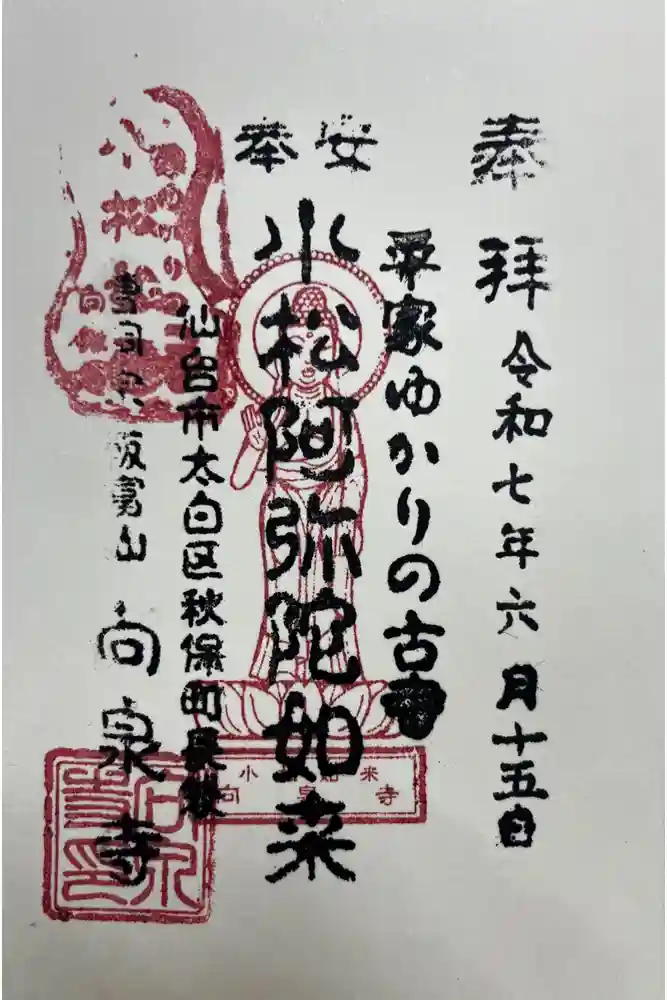 奉拝
令和七年六月十五日
平家ゆかりの古寺
安奉
小松阿弥陀如来
仙台市太白区秋保町長袋
曹洞宗 阪寓山 向泉寺
小 如来
向泉寺
向泉寺印